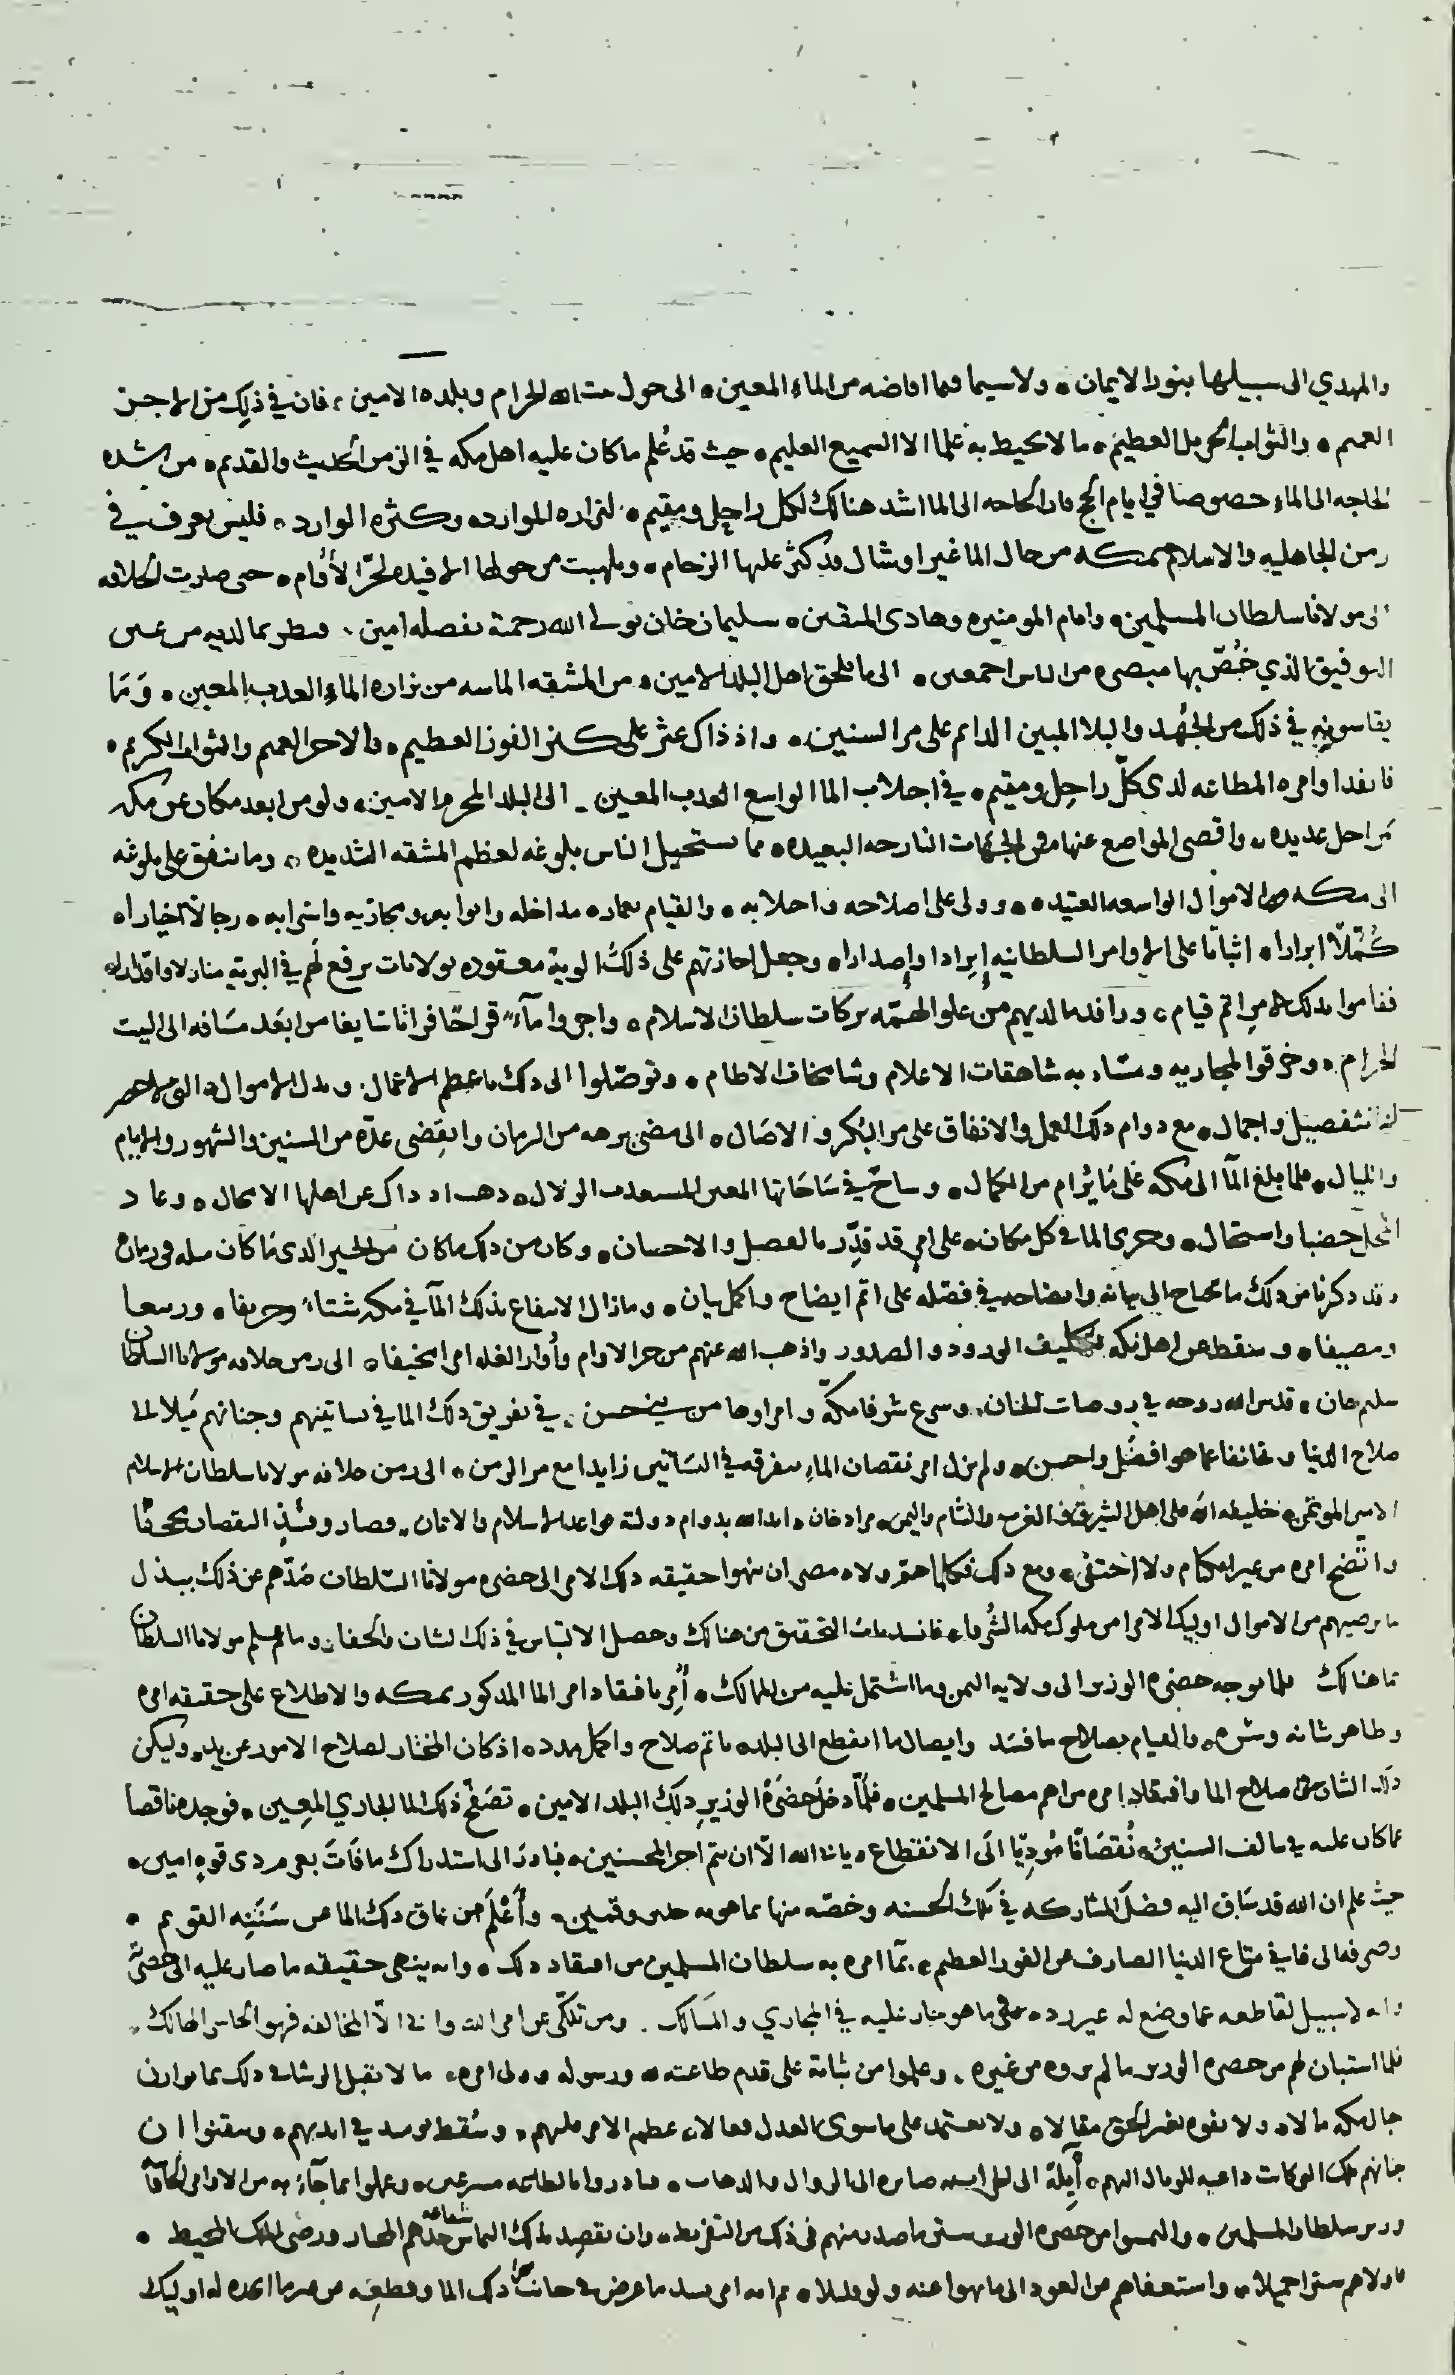 والمهدي الى سبيلها بنور الايمان ولا سيما فيما افاضه من الماء المعين الى حول بيت الله الحرام وبلده الامين فان في ذلك من الاجر
العميم والثواب الجزيل العظيم ما لا يحيط به علما الا السميع العليم حيث قد علم ما كان عليه اهل مكه في الزمن الحديث والقديم من شده
الحاجه الى الماء خصوصا في ايام الحج فان الحاجه الى الما اشد هنالك لكل راحل ومقيم لنزاره الموارد وكثره الوارد فليس يعرف في
زمن الجاهليه والاسلام بمكه من حال الما غير اوشال قد كثر عليها الزحام وتلهبت من حولها الافيده لحر الأوام حتى صارت الخلافه
الى مولانا سلطان المسلمين وامام المومنين وهادي المتقين سليمان خان تولى الله رحمته بفضله امين فنظر بما لديه من عين
التوفيق الذي خُصّ بها مبصره من الناس اجمعين الى ما يلحق اهل البلد الامين من المشقه الماسه من نزاره الماء العذب المعين وَمَا
يقاسونه في ذلك من الجُهد والبلا المبين الدائم على مر السنين واذ ذاك عثر على كنز الفوز العظيم والاجر العميم والثواب الكريم
فانفذ اوامره المطاعه لدى كل راحل ومقيم في اجلاب الما الواسع العذب المعين الى البلد المحرم الامين ولو من ابعد مكان عن مكه
بمراحل عديده واقصى المواضع عنها وفي الجهات النازحه البعيده مما يستحيل الناس بلوغه لعظم المشقه الشديده وما ينفق على بلوغه
الى مكه من الاموال الواسعه العتيده وولى على اصلاحه واجلابه والقيام بعماره مداخله وابوابه ومجاريه واسرابه رجالا اخيارا
كُمّلا ابرارا اثباتا على الاوامر السلطانيه إيرادا وإصدارا وجعل اجازتهم على ذلك الوية معقوده بولايات يرفع لهم في البرية منازلا واقدارا
فقاموا بذلك الامر اتم قيام ورافد ما لديهم من علو الهمّه بركات سلطان الاسلام واجروا مآءً قراحا فراتا سايغا من ابعد مسافه الى البيت
الحرام وخرقوا لمجاريه ومسار به شاهقات الاعلام وشامخات الاطام وتوصّلوا الى ذلك باعظم الاعمال وبذل الاموال التي لا تحصر
بتفصيل واجمال مع دوام ذلك العمل والانفاق على مر البُكر والاصال الى مضى برهه من الزمان وانقضى عدّه من السنين والشهور والايام
والليال فلما بلغ المآ الى مكه على ما يُرام من الكمال وساح في ساحاتها المعين المستعذب الزلال ذهب اذ ذاك عن اهلها الامحال وعاد
المحل خصبا واستحال وجرى الما في كل مكان على امر قد قدّر بالفضل والاحسان وكان من ذلك ما كان من الخير الذي ما كان مثله في زمان
وقد ذكرنا من ذلك ما يحتاج الى بيانه وايضاحه في فصله على اتم ايضاح واكمل بيان وما زال الانتفاع بذلك المآ في مكه شتاءً وخريفا وربيعا
ومصيفا وسقط عن اهل مكه تكليف الورود والصدور واذهب الله عنهم من حر الاوام وأوار الغله امرا مخيفا الى زمن خلافه مولانا السلطان
سليم خان قدس الله روحه في روضات الجنان وسرع شرفا مكّه وامراوها من بني حسن في تفريق ذلك الما في بساتينهم وجنانهم ميلا الى
صلاح الدنيا وتغافلا عما هو افضل واحسن ولم يزل امر نقصان الماء بتفرقه في البساتين زايدا مع مر الزمن الى زمن خلافه مولانا سلطان الاسلام
الامين الموتمن خليفه الله على اهل الشرق والغرب والشام واليمن مراد خان ايد الله بدوام دولته قواعد الاسلام والايمان وصار ومئذٍ النقصان
واتّضح امره من غير اكتام ولا اختفى ومع ذلك فكلما هم ولاه مصر ان ينهوا حقيقه ذلك الامر الى حضره مولانا السلطان صَدّهم عن ذلك ببذل
ما يرضيهم من الاموال اوليك الامرا من ملوك مكه الشرفا فانسد باب التحقيق من هنالك وحصل الالتباس في ذلك الشان والخفا وما علم مولانا السلطان
بما هنالك فلما توجه حضره الوزير الى ولايه اليمن وما اشتمل عليه من الممالك أُمر بافتقاد امر الما المذكور بمكه والاطلاع على حقيقه امره
وظاهر شانه وسره والقيام بصلاح ما فسد وايصال ما انقطع الى البلده باتم صلاح واكمل مدده اذ كان المختار لصلاح الامور عن يد وليكن
ذلك الشان في صلاح الما وافتقاد امره من اهم مصالح المسلمين فلمّا دخلَ حضرةُ الوزير ذلك البلد الامين تصفّح ذلك الما الجاري المعين فوجده ناقصا
عما كان عليه في سالف السنين نُقصَانًا مُودِيّا الى الانقطاع ويابى الله الّا ان يتم اجر المحسنين فبادرَ الى استدراك ما فاتَ بعزم ذي قوه امين
حيث علم ان الله قد ساق اليه فضل المشاركه في تلك الحسنه وخصّه منها بما هو به حري وقمين وأعْلَمَ من عاق ذلك الما عن سَنَنِه القويم
وصرفه الى فاني متاع الدنيا الصارف عن الفوز العظيم بمّا امره به سلطان المسلمين من افتقاد ذلك وانه ينهي حقيقه ما صار عليه الى حضرته
وانه لا سبيل لقاطعه عما وضع له غير رده على ما هو مار عليه في المجاري والمَسَالك ومن تلكّى عن امر الله وابى الّا المخالفه فهو الخاسر الهالك
فلما استبان لهم من حضره الوزير ما لم يروه من غيره وعلموا من ثباته على قدم طاعته ورسوله وولى امره ما لا تقبل الرشا في ذلك بما يوازن
جبال مكه مالا ولا يفوه بغير الحق مقالا ولا يعتمد على ما سوى العدل فعالا عظم الامر عليهم وسُقط في ايديهم وتيقنوا ان
جنانهم تلك ان كانت داعيه للوبال اليهم آيِلة الى صايره الى الزوال والذهاب فبادروا بالطاعه مسرعين وعملوا بما جآء به من الاوامر
وزير سلطان المسلمين والتمسوا من حضره الوزير ستر ما صدر منهم في ذلك من التفريط وان يقصد لذلك التماس شفاعه جدّهم المختار ورضى الملك المحيط
فاولاهم سترا جميلا واستعفاهم من العود الى ما نهوا عنه ولو قليلا ثم انه امر بسد ما عرض في جانب ذلك الما وقطعه من اوليك